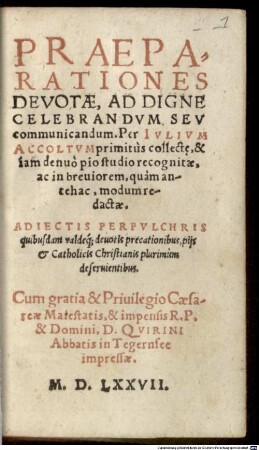 1
PRAEPA-
RATIONES
DEVOTÆ, AD DIGNE
CELEBRANDVM SEV
communicandum. Per IVLIVM
ACCOLTVM primitùs collectę, &
iam denuò pio studio recognitæ,
ac in breuiorem, quàm an-
tehac, modum re-
dactæ.
ADIECTIS PERPVLCHRIS
quibusdam valdeq́; deuotis precationibus, pijs
& Catholicis Christianis plurimùm
deseruientibus.
Cum gratia & Priuilegio Cæsa-
reæ Maiestatis, & impensis R. P.
& Domini, D. QVIRINI
Abbatis in Tegernsee
impressæ.
M. D. LXXVII.